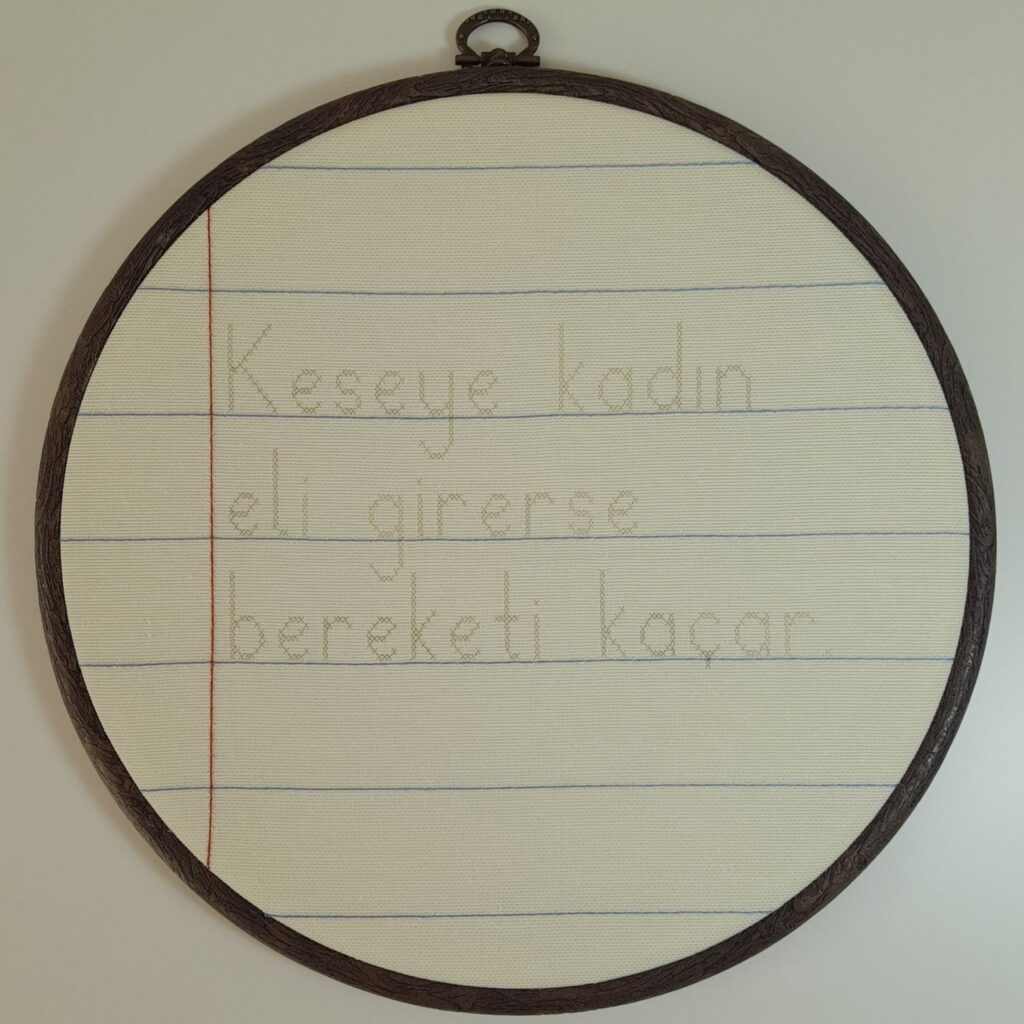 Keseye kadın
eli girerse
bereketi kaçar.